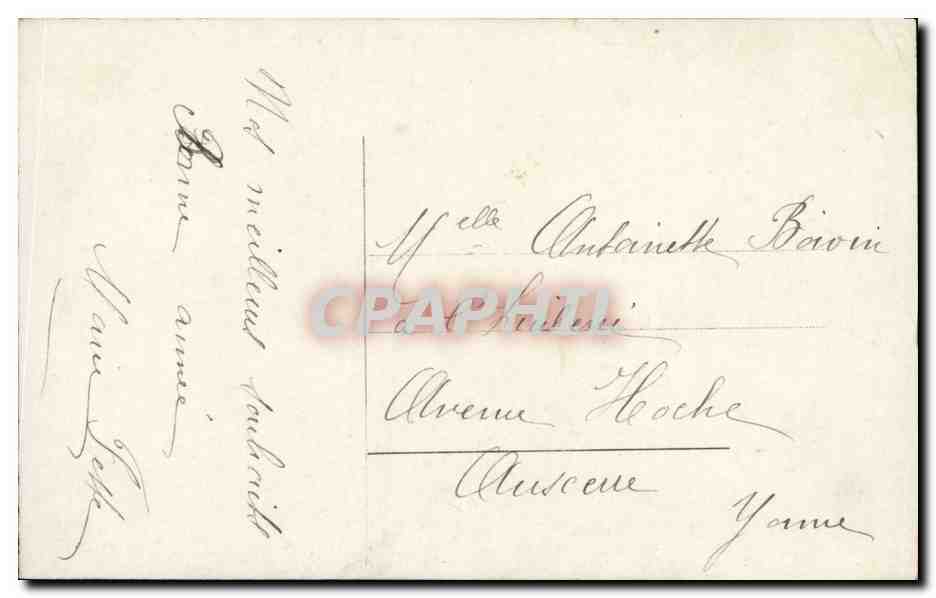 Mes meilleurs souhaits
Bonne année
Marie
Melle Antoinette Boivin
à l'
Avenue Hoche
Auxerre
Yonne
CPAPHTI